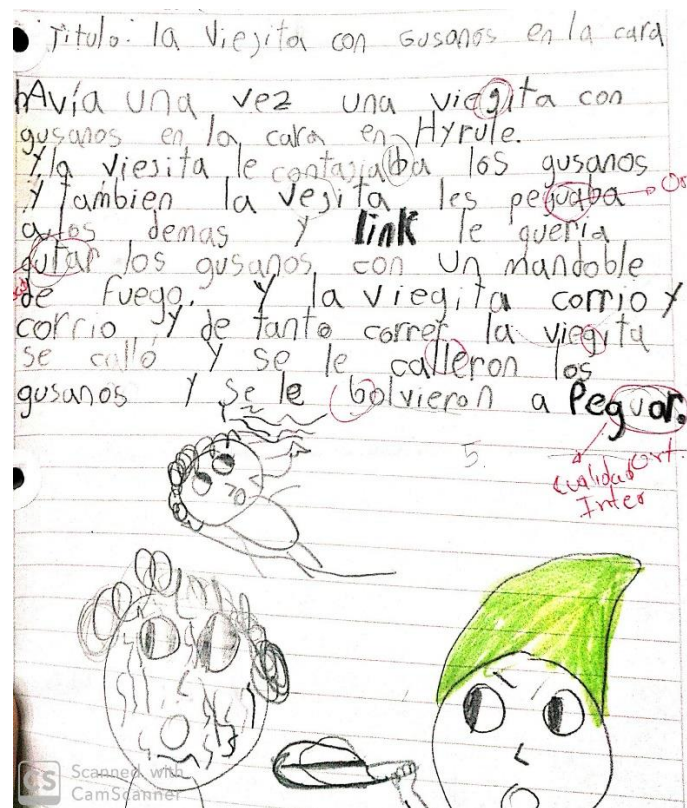 Titulo: la Viejita con Gusanos en la cara
hAvía una vez una viegita con
gusanos en la cara en Hyrule.
Y la viejita le contajiaba los gusanos
Y tambien la vejita les peguaba
a los demas y link le queria
qutar los gusanos con un mandoble
de fuego. Y la viegita corrio y
corrio y de tanto correr la viegita
se calló y se le calleron los
gusanos y se le bolvieron a Peguar.
5.
Cualidad Ort.
Inter
CS Scanned with
CamScanner